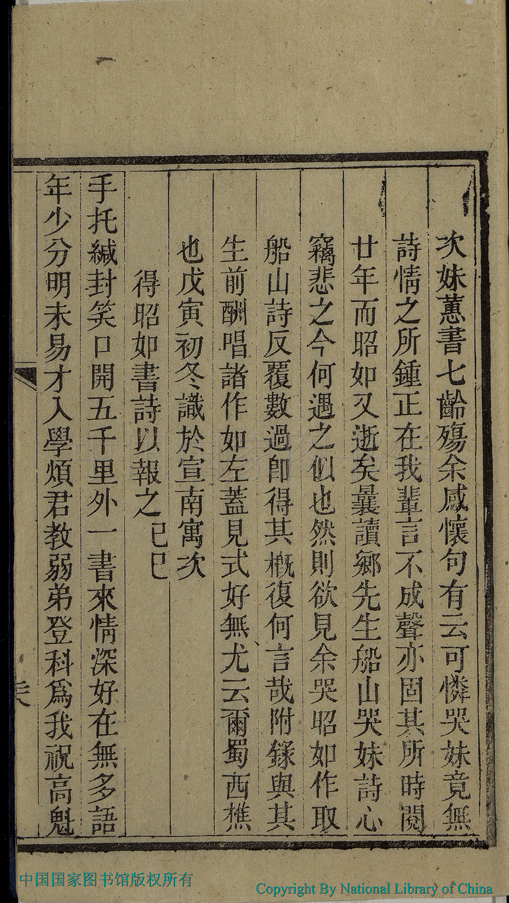 次妹蕙書七齡殤余感懷句有云可憐哭妹竟無
詩情之所鍾正在我輩言不成聲亦固其所時閱
廿年而昭如又逝矣曩讀鄉先生船山哭妹詩心
竊悲之今何遇之似也然則欲見余哭昭如作取
船山詩反覆數過卽得其槪復何言哉附錄與其
生前酬唱諸作如左蓋見式好無尤云爾蜀西樵
也戊寅初冬識於宣南寓次
得昭如書詩以報之 己巳
手托緘封笑口開五千里外一書來情深好在無多語
年少分明未易才入學煩君教弱弟登科爲我祝高魁
中国国家图书馆版权所有
Copyright By National Library of China